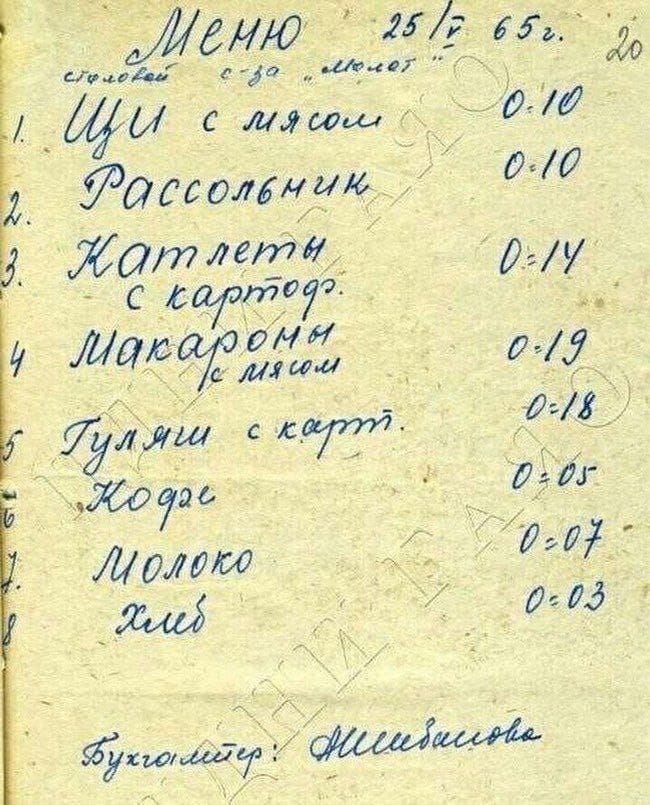 Меню 25/V 65г. 20
столовой с-за „Молот"
1. Щи с мясом 0=10
2. Рассольник 0=10
3. Катлеты 0=14
с картоф.
4 Макароны 0=19
с мясом
5 Гуляш с карт. 0=18
6 Кофе 0=05
7. Молоко 0=07
8 Хлеб 0=03
Бухгалтер: